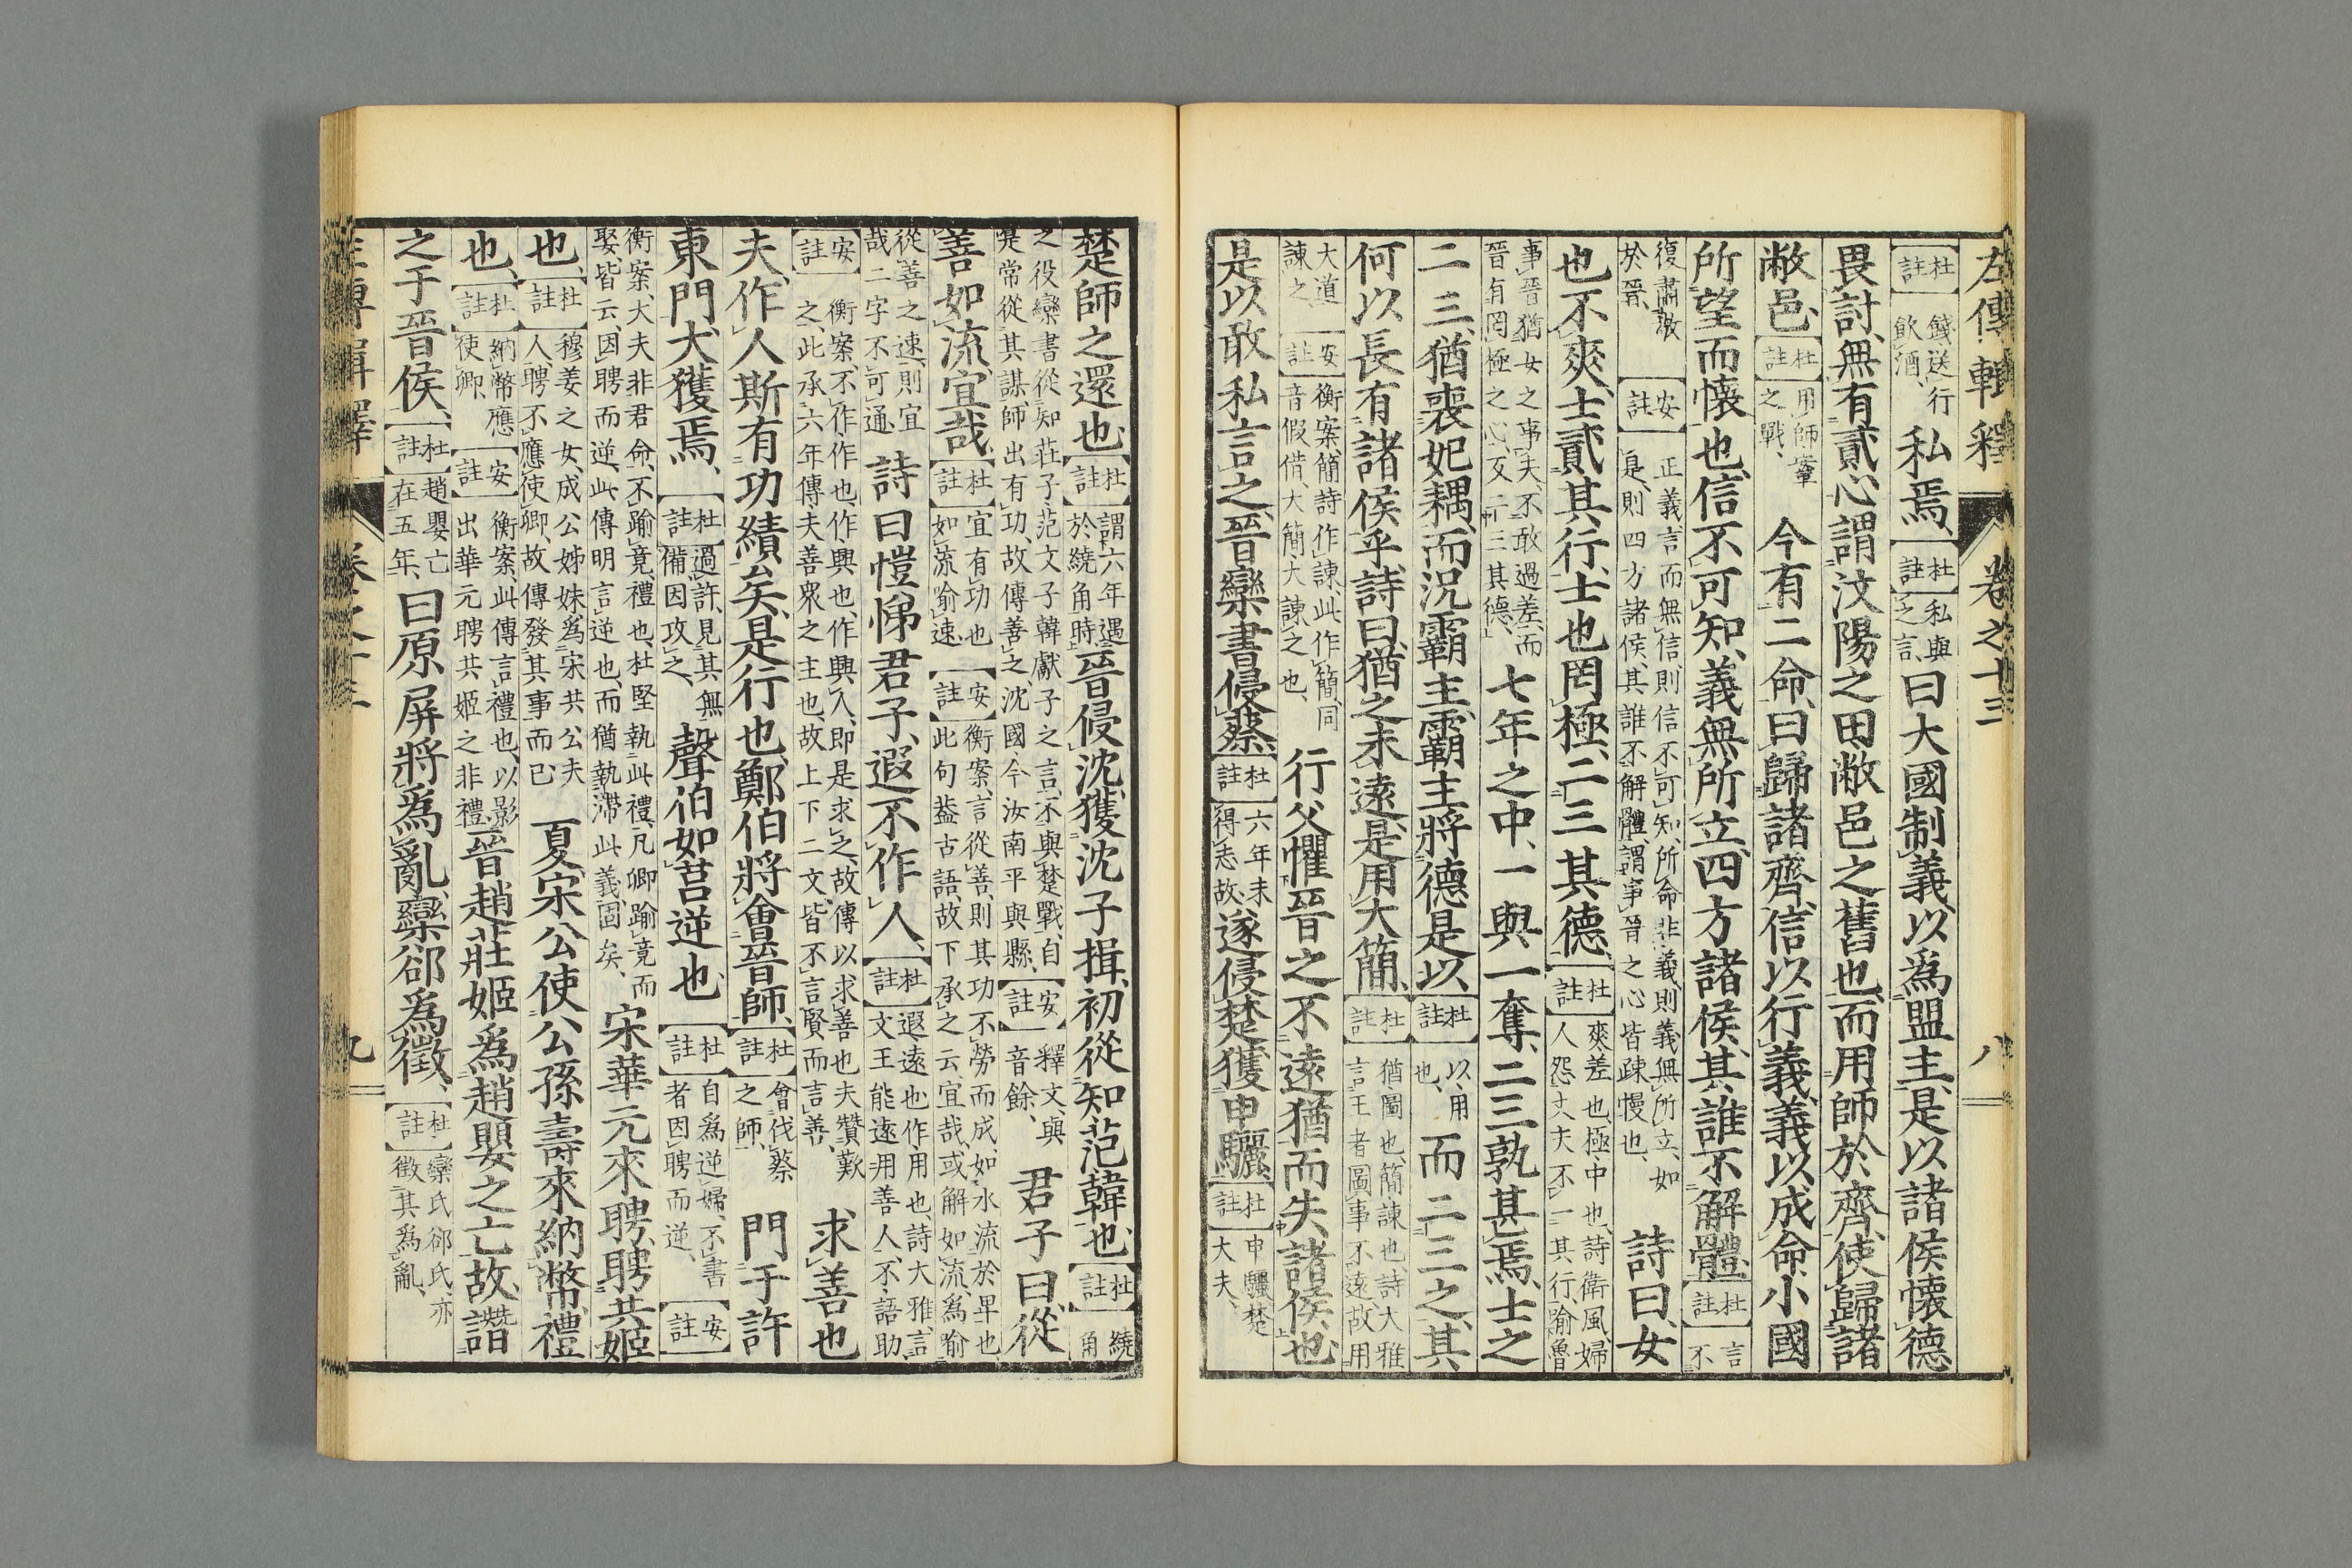 左傳輯釋 卷之十三 八
杜註 餞送行飲酒、私焉、杜註 私與之言、曰大國制義、以爲盟主、是以諸侯懷德
畏討、無有貳心、謂汶陽之田、敝邑之舊也、而用師於齊、使歸諸
敝邑、杜註 用師鞌之戰、今有二命、曰歸諸齊、信以行義、義以成命、小國
所望而懷也、信不可知、義無所立、四方諸侯、其誰不解體、杜註 言不
復肅敬於晉、安註 正義言而無信、則信不可知、所命非義、則義無所立、如是、則四方諸侯、其誰不解體、謂事晉之心皆疎慢也、詩曰、女
也不爽、士貳其行、士也罔極、二三其德、杜註 爽差也、極、中也、詩衛風、婦人怨丈夫不一其行、喻魯
事晉猶女之事夫、不敢過差、而晉有罔極之心、反二三其德、七年之中、一與一奪、二三孰甚焉、士之
二三、猶喪妃耦、而況霸主、霸主將德是以、杜註 以、用也、而二三之、其
何以長有諸侯乎、詩曰、猶之未遠、是用大簡、杜註 猶圖也、簡諫也、詩大雅言王者圖事不遠、故用
大道諫之、安註 衡案、簡詩作諫、此作簡、同音假借、大簡大諫之也、行父懼晉之不遠猶而失諸侯也、
是以敢私言之、晉欒書侵蔡、杜註 六年未得志故、遂侵楚獲申驪、杜註 申驪楚大夫、
楚師之還也、杜註 謂六年遇於繞角時、晉侵沈、獲沈子揖、初從知范韓也、杜註 繞角
之役欒書從知莊子范文子韓獻子之言、不與楚戰、自是常從其謀、師出有功、故傳善之、沈國今汝南平與縣、安註 釋文、與音餘、君子曰、從
善如流、宜哉、杜註 宜有功也如流喻速、安註 衡案、言從善、則其功不勞而成、如水流於卑也、此句葢古語、故下承之云、宜哉、或解如流、爲喻
從善之速、則宜哉二字不可通、詩曰愷悌君子、遐不作人、杜註 遐遠也、作用也、詩大雅、言文王能遠用善人、不、語助
安註 衡案、不作、作也、作、興也、作興人、即是求之、故傳以求善也夫贊歎之、此承六年傳、夫善衆之主也、故上下二文、皆不言賢而言善、求善也
夫、作人斯有功績矣、是行也、鄭伯將會晉師、杜註 會伐蔡之師、門于許
東門、大獲焉、杜註 過許、見其無備、因攻之、聲伯如莒、逆也、杜註 自爲逆婦、不書者因聘而逆、安註
衡案、大夫非君命、不踰竟、禮也、杜堅執此禮、凡卿踰竟而娶、皆云、因聘而逆、此傳明言逆也、而猶執滯此義、固矣、宋華元來聘、聘共姬
也、杜註 穆姜之女、成公姊妹、爲宋共公夫人、聘不應使卿、故傳發其事而已、夏、宋公使公孫壽來納幣、禮
也、杜註 納幣應使卿、安註 衡案、此傳言禮也、以影出華元聘共姬之非禮、晉趙莊姬爲趙嬰之亡故、譖
之于晉侯、杜註 趙嬰亡在五年、曰原屏將爲亂、欒郤爲徵、杜註 欒氏郤氏、亦徵其爲亂、
九